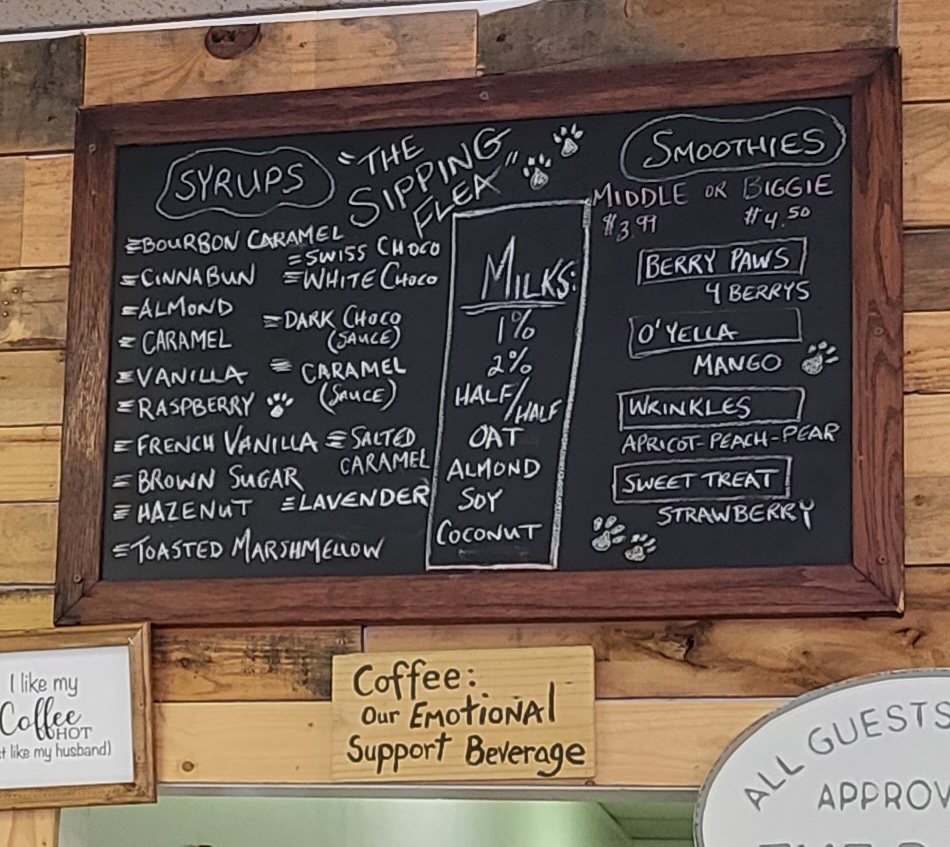 "THE
SIPPING
FLEA"
SYRUPS
BOURBON CARAMEL
CINNABUN
ALMOND
CARAMEL
VANILLA
RASPBERRY
FRENCH VANILLA
BROWN SUGAR
HAZENUT
TOASTED MARSHMELLOW
SWISS CHOCO
WHITE CHOCO
DARK CHOCO
(SAUCE)
CARAMEL
(SAUCE)
SALTED
CARAMEL
LAVENDER
MILKS:
1%
2%
HALF/HALF
OAT
ALMOND
SOY
COCONUT
SMOOTHIES
MIDDLE OR BIGGIE
$3.99 $4.50
BERRY PAWS
4 BERRYS
O'YELLA
MANGO
WRINKLES
APRICOT-PEACH-PEAR
SWEET TREAT
STRAWBERRY
I like my
Coffee
HOT
like my husband)
Coffee:
Our EMOTIONAl
Support Beverage
ALL GUESTS